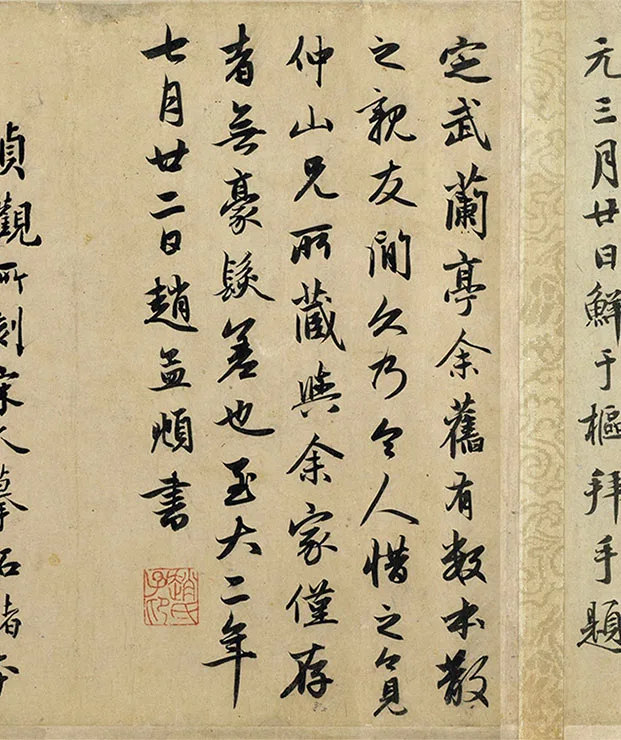 元三月廿日鮮于樞拜手題
定武蘭亭余舊有數本散
之親友間久乃令人惜之今見
仲山兄所藏與余家僅存
者無豪髮差也至大二年
七月廿二日趙孟頫書
趙氏子昂
觀所刻宋人摹石